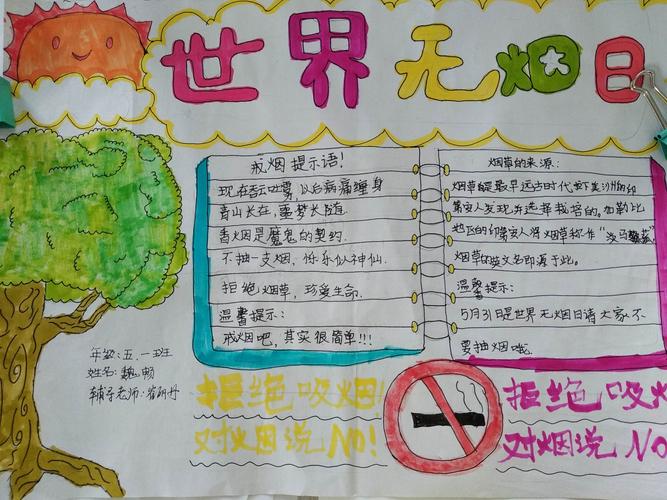 世界无烟日
戒烟提示语!
现在吞云吐雾,以后病痛缠身
青山长在,噩梦长随.
香烟是魔鬼的契约.
不抽一支烟,快乐似神仙.
拒绝烟草,珍爱生命.
温馨提示:
戒烟吧,其实很简单!!!
烟草的来源:
烟草是最早远古时代被美洲的印
第安人发现并选择栽培的。加勒比
地区的印第安人将烟草称作
烟草的英文名即源于此。
温馨提示:
5月31日是世界无烟日请大家不
要抽烟哦.
年级:五.一班
姓名:魏畅
辅导老师:
拒绝吸烟!
对烟说No!
拒绝吸烟
对烟说 No